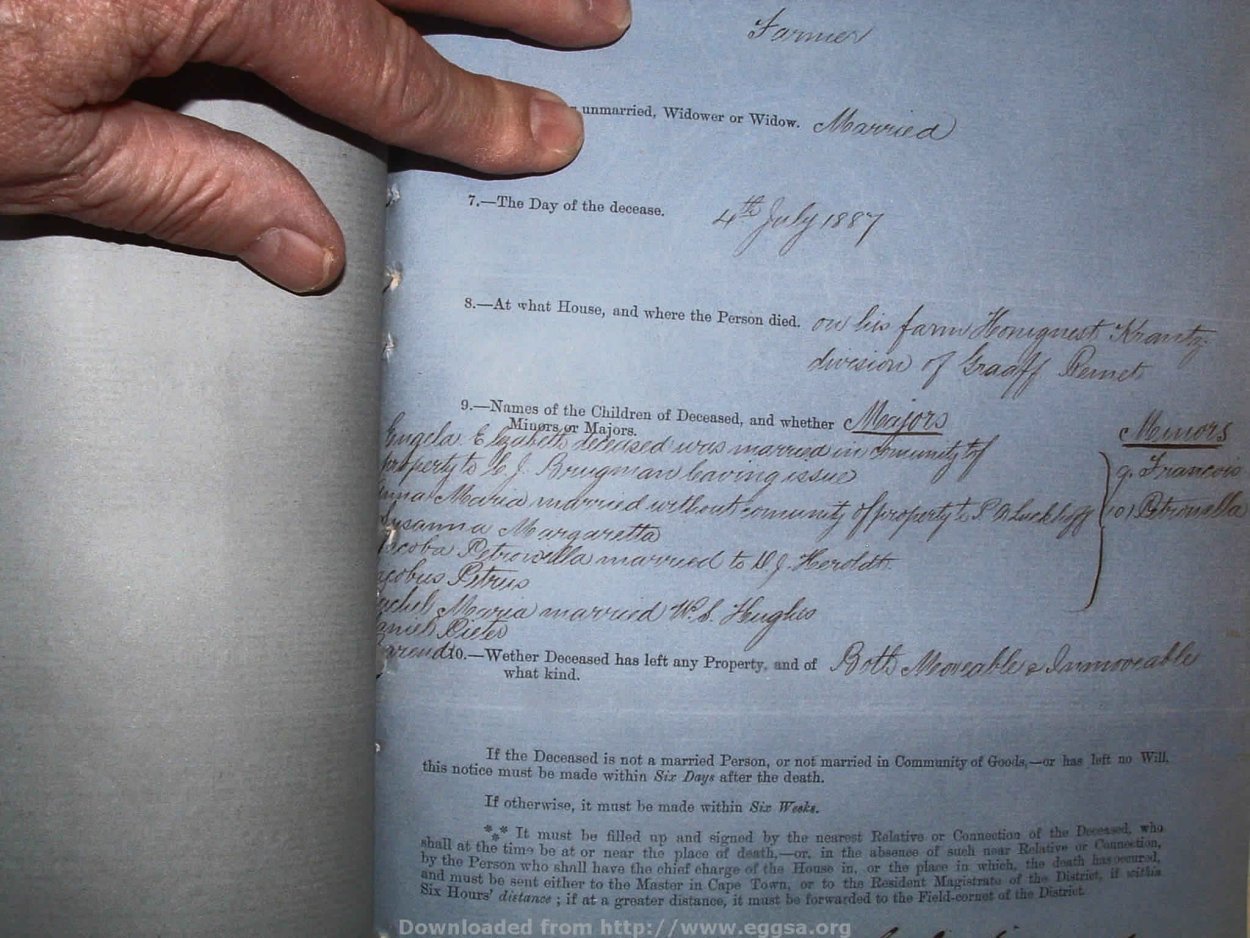 Farmer
unmarried, Widower or Widow. Married
7.—The Day of the decease. 4th July 1887
8.—At what House, and where the Person died. on his farm Honignest Krantz
division of Graaff Reinet
9.—Names of the Children of Deceased, and whether Majors
Minors or Majors. Minors
Engela Elizabeth deceased was married in comunity of
property to C J. Brugman leaving issue
9. Francois
nna Maria married without comunity of property to P A Luckhoff
10) Petronella
usanna Margaretta
acoba Petronella married to D J. Heroldt
acobus Petrus
achel Maria married W. S. Hughes
aniel Pieter
arend 10.—Wether Deceased has left any Property, and of Both Moveable & Immoveable
what kind.
If the Deceased is not a married Person, or not married in Community of Goods,—or has left no Will,
this notice must be made within Six Days after the death.
If otherwise, it must be made within Six Weeks.
*** It must be filled up and signed by the nearest Relative or Connection of the Deceased, who
shall at the time be at or near the place of death,—or, in the absence of such near Relative or Connection,
by the Person who shall have the chief charge of the House in, or the place in which, the death has occured,
and must be sent either to the Master in Cape Town, or to the Resident Magistrate of the District, if within
Six Hours' distance; if at a greater distance, it must be forwarded to the Field-cornet of the District.
Downloaded from http://www.eggsa.org